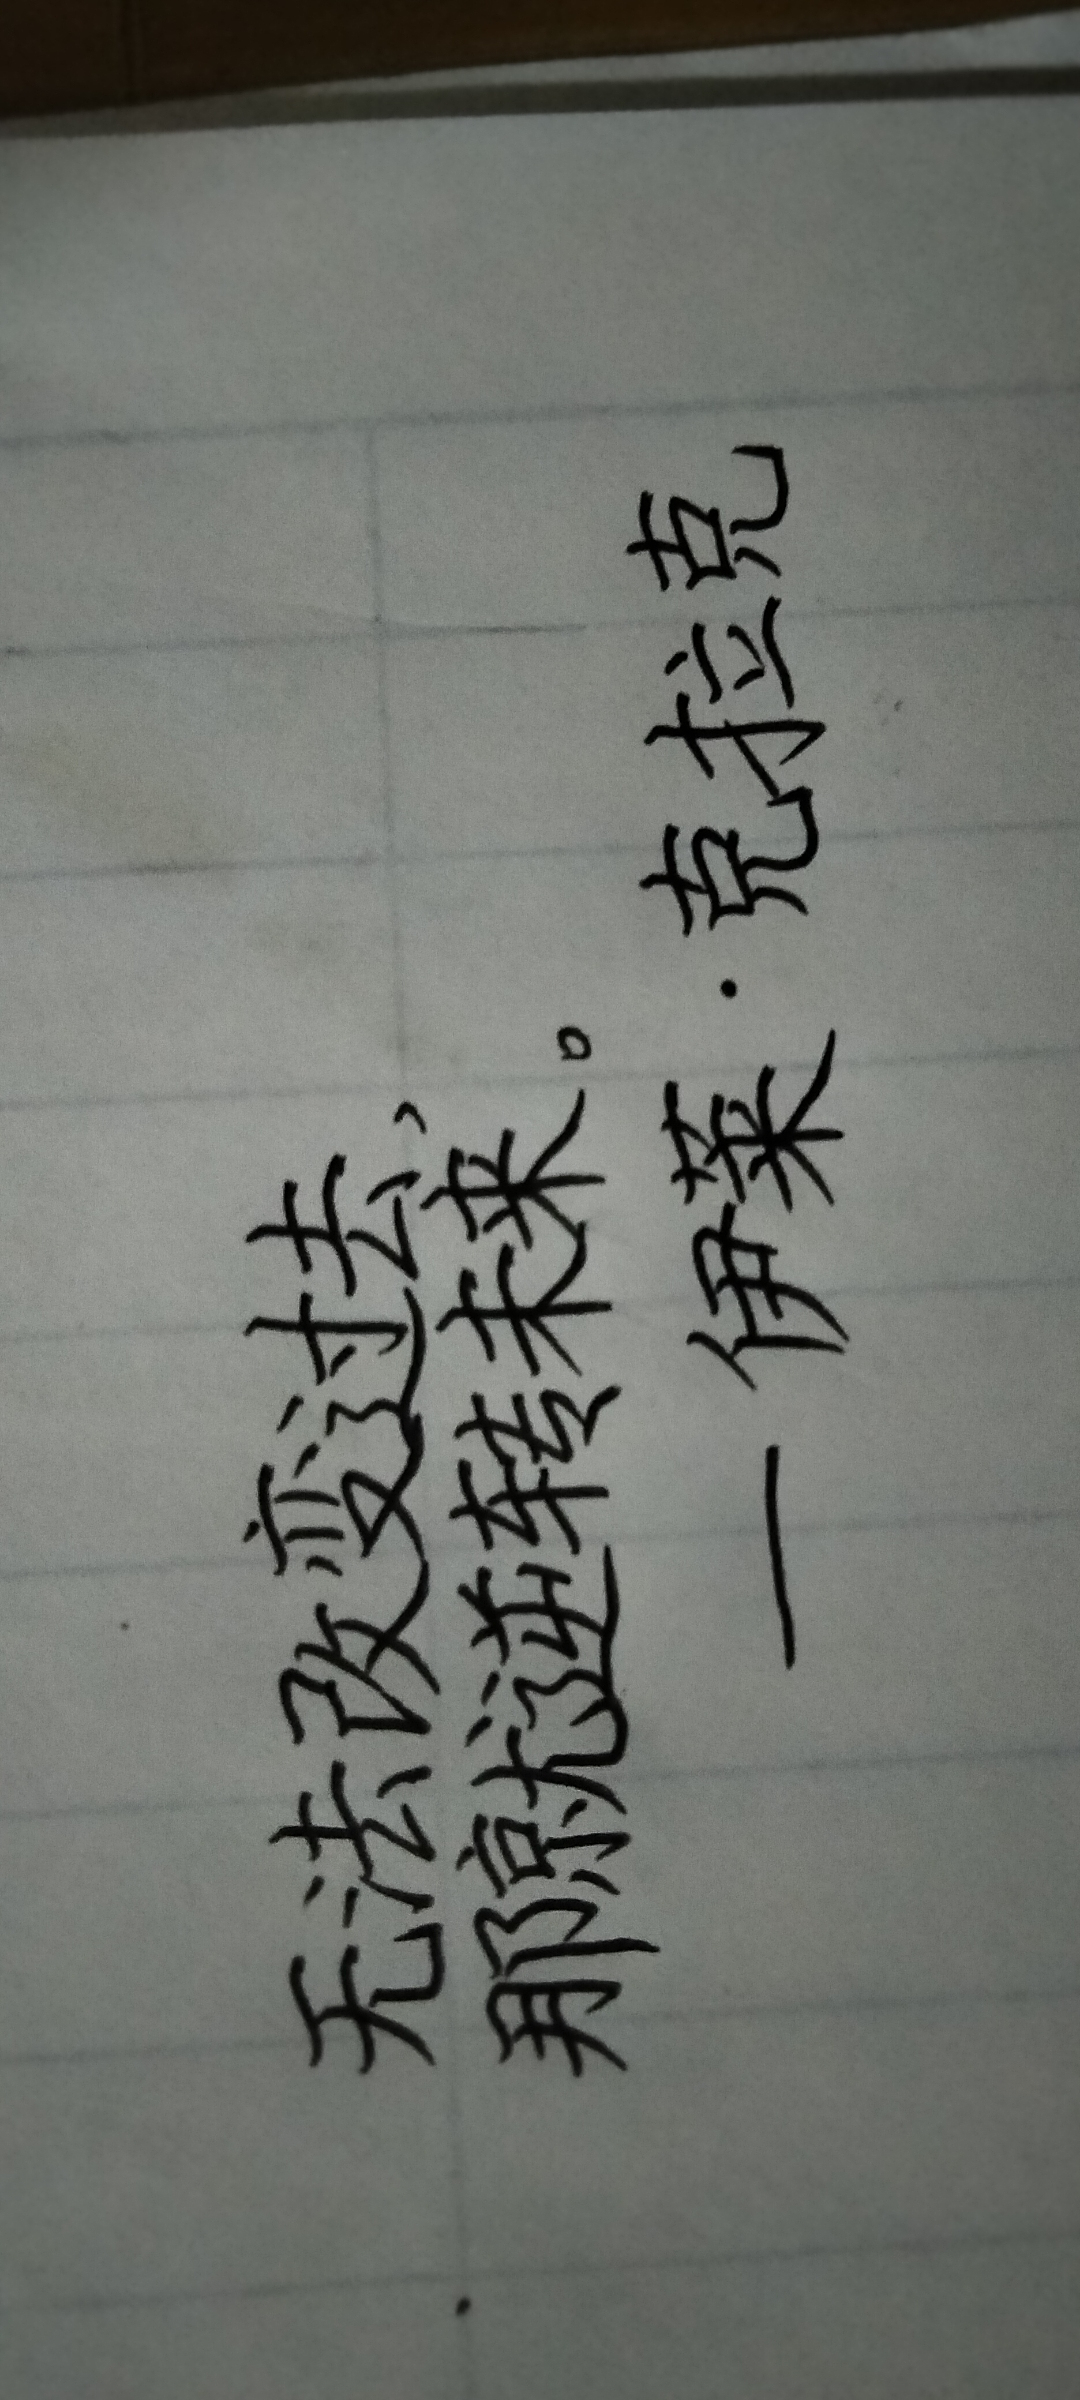 无法改变过去，
那就逆转未来。
— 伊莱·克拉克